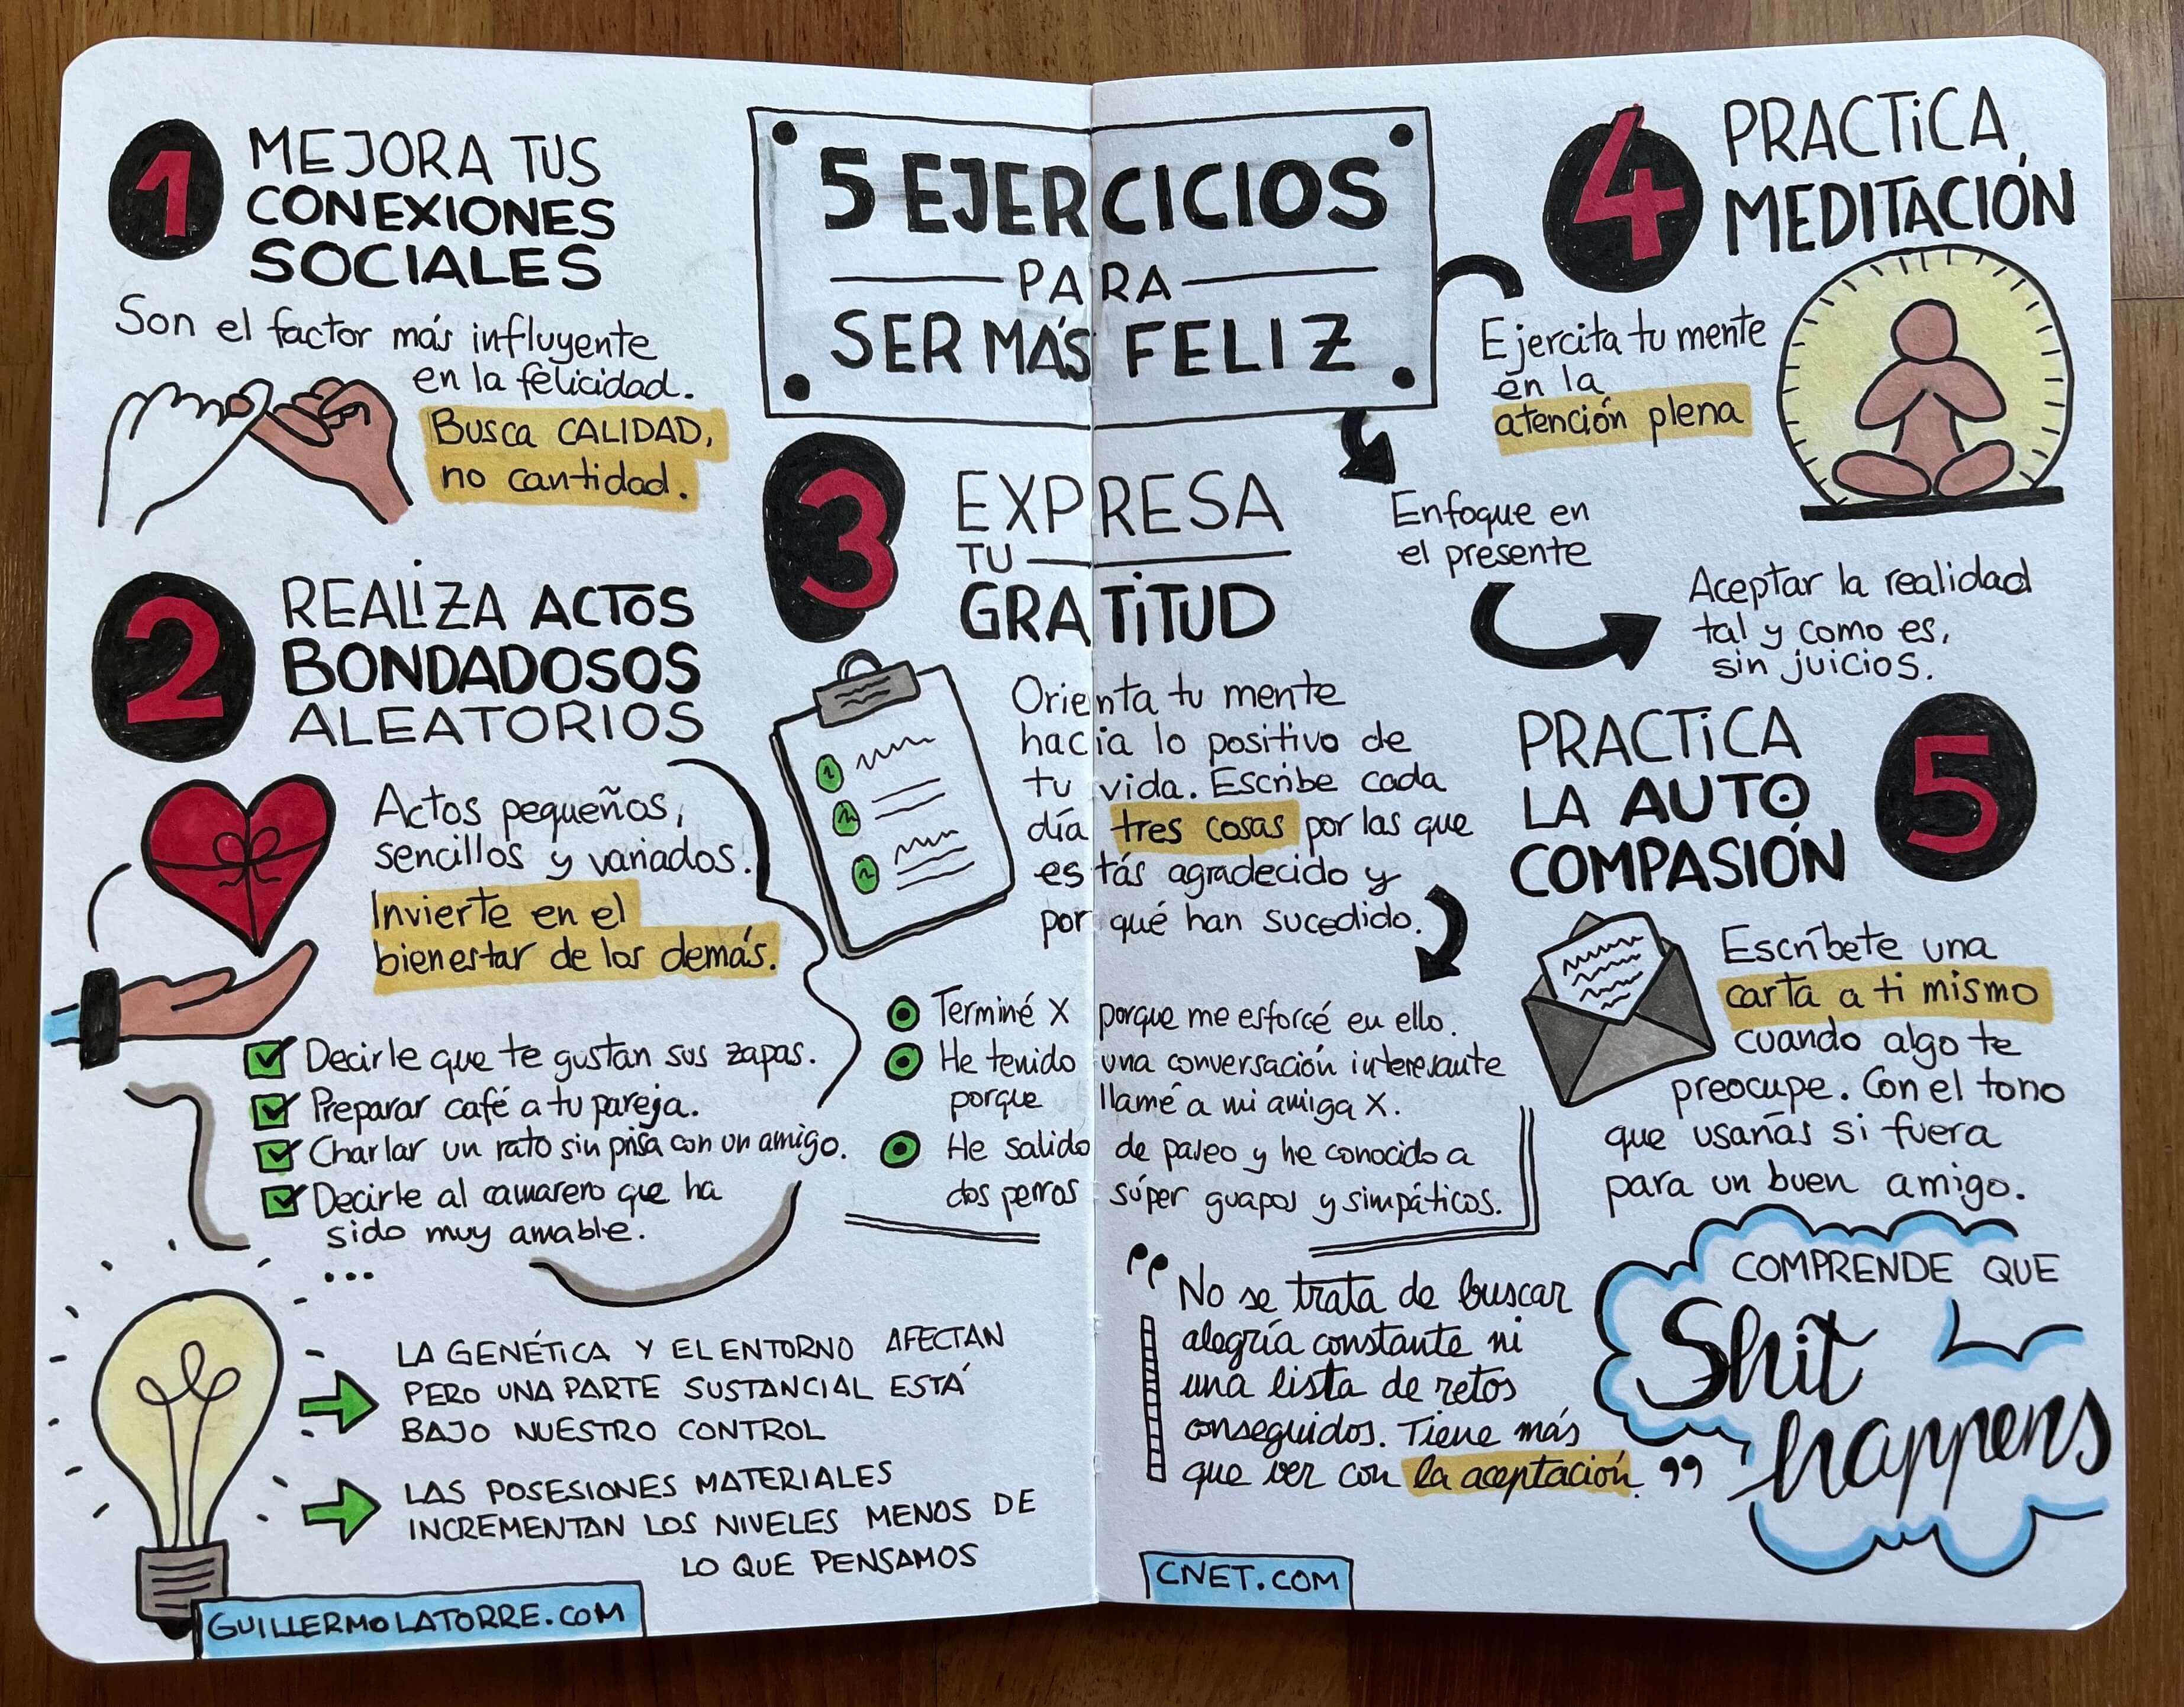 5 EJERCICIOS
PARA
SER MÁS FELIZ
1
MEJORA TUS
CONEXIONES
SOCIALES
Son el factor más influyente
en la felicidad.
Busca CALIDAD,
no cantidad.
2
REALIZA ACTOS
BONDADOSOS
ALEATORIOS
Actos pequeños,
sencillos y variados.
Invierte en el
bienestar de los demás.
Decirle que te gustan sus zapas.
Preparar café a tu pareja.
Charlar un rato sin prisa con un amigo.
Decirle al camarero que ha
sido muy amable.
...
LA GENÉTICA Y EL ENTORNO AFECTAN
PERO UNA PARTE SUSTANCIAL ESTÁ
BAJO NUESTRO CONTROL
LAS POSESIONES MATERIALES
INCREMENTAN LOS NIVELES MENOS DE
LO QUE PENSAMOS
GUILLERMOLATORRE.COM
3
EXPRESA
TU
GRATITUD
Orienta tu mente
hacia lo positivo de
tu vida. Escribe cada
día tres cosas por las que
estás agradecido y
por qué han sucedido.
Terminé X porque me esforcé en ello.
He tenido una conversación interesante
porque llamé a mi amiga X.
He salido de paseo y he conocido a
dos perros súper guapos y simpáticos.
4
PRACTICA
MEDITACIÓN
Ejercita tu mente
en la
atención plena
Enfoque en
el presente
Aceptar la realidad
tal y como es,
sin juicios.
PRACTICA
LA AUTO
COMPASIÓN
5
Escríbete una
carta a ti mismo
cuando algo te
preocupe. Con el tono
que usarías si fuera
para un buen amigo.
"No se trata de buscar
alegría constante ni
una lista de retos
conseguidos. Tiene más
que ver con la aceptación."
COMPRENDE QUE
Shit
happens
CNET.COM